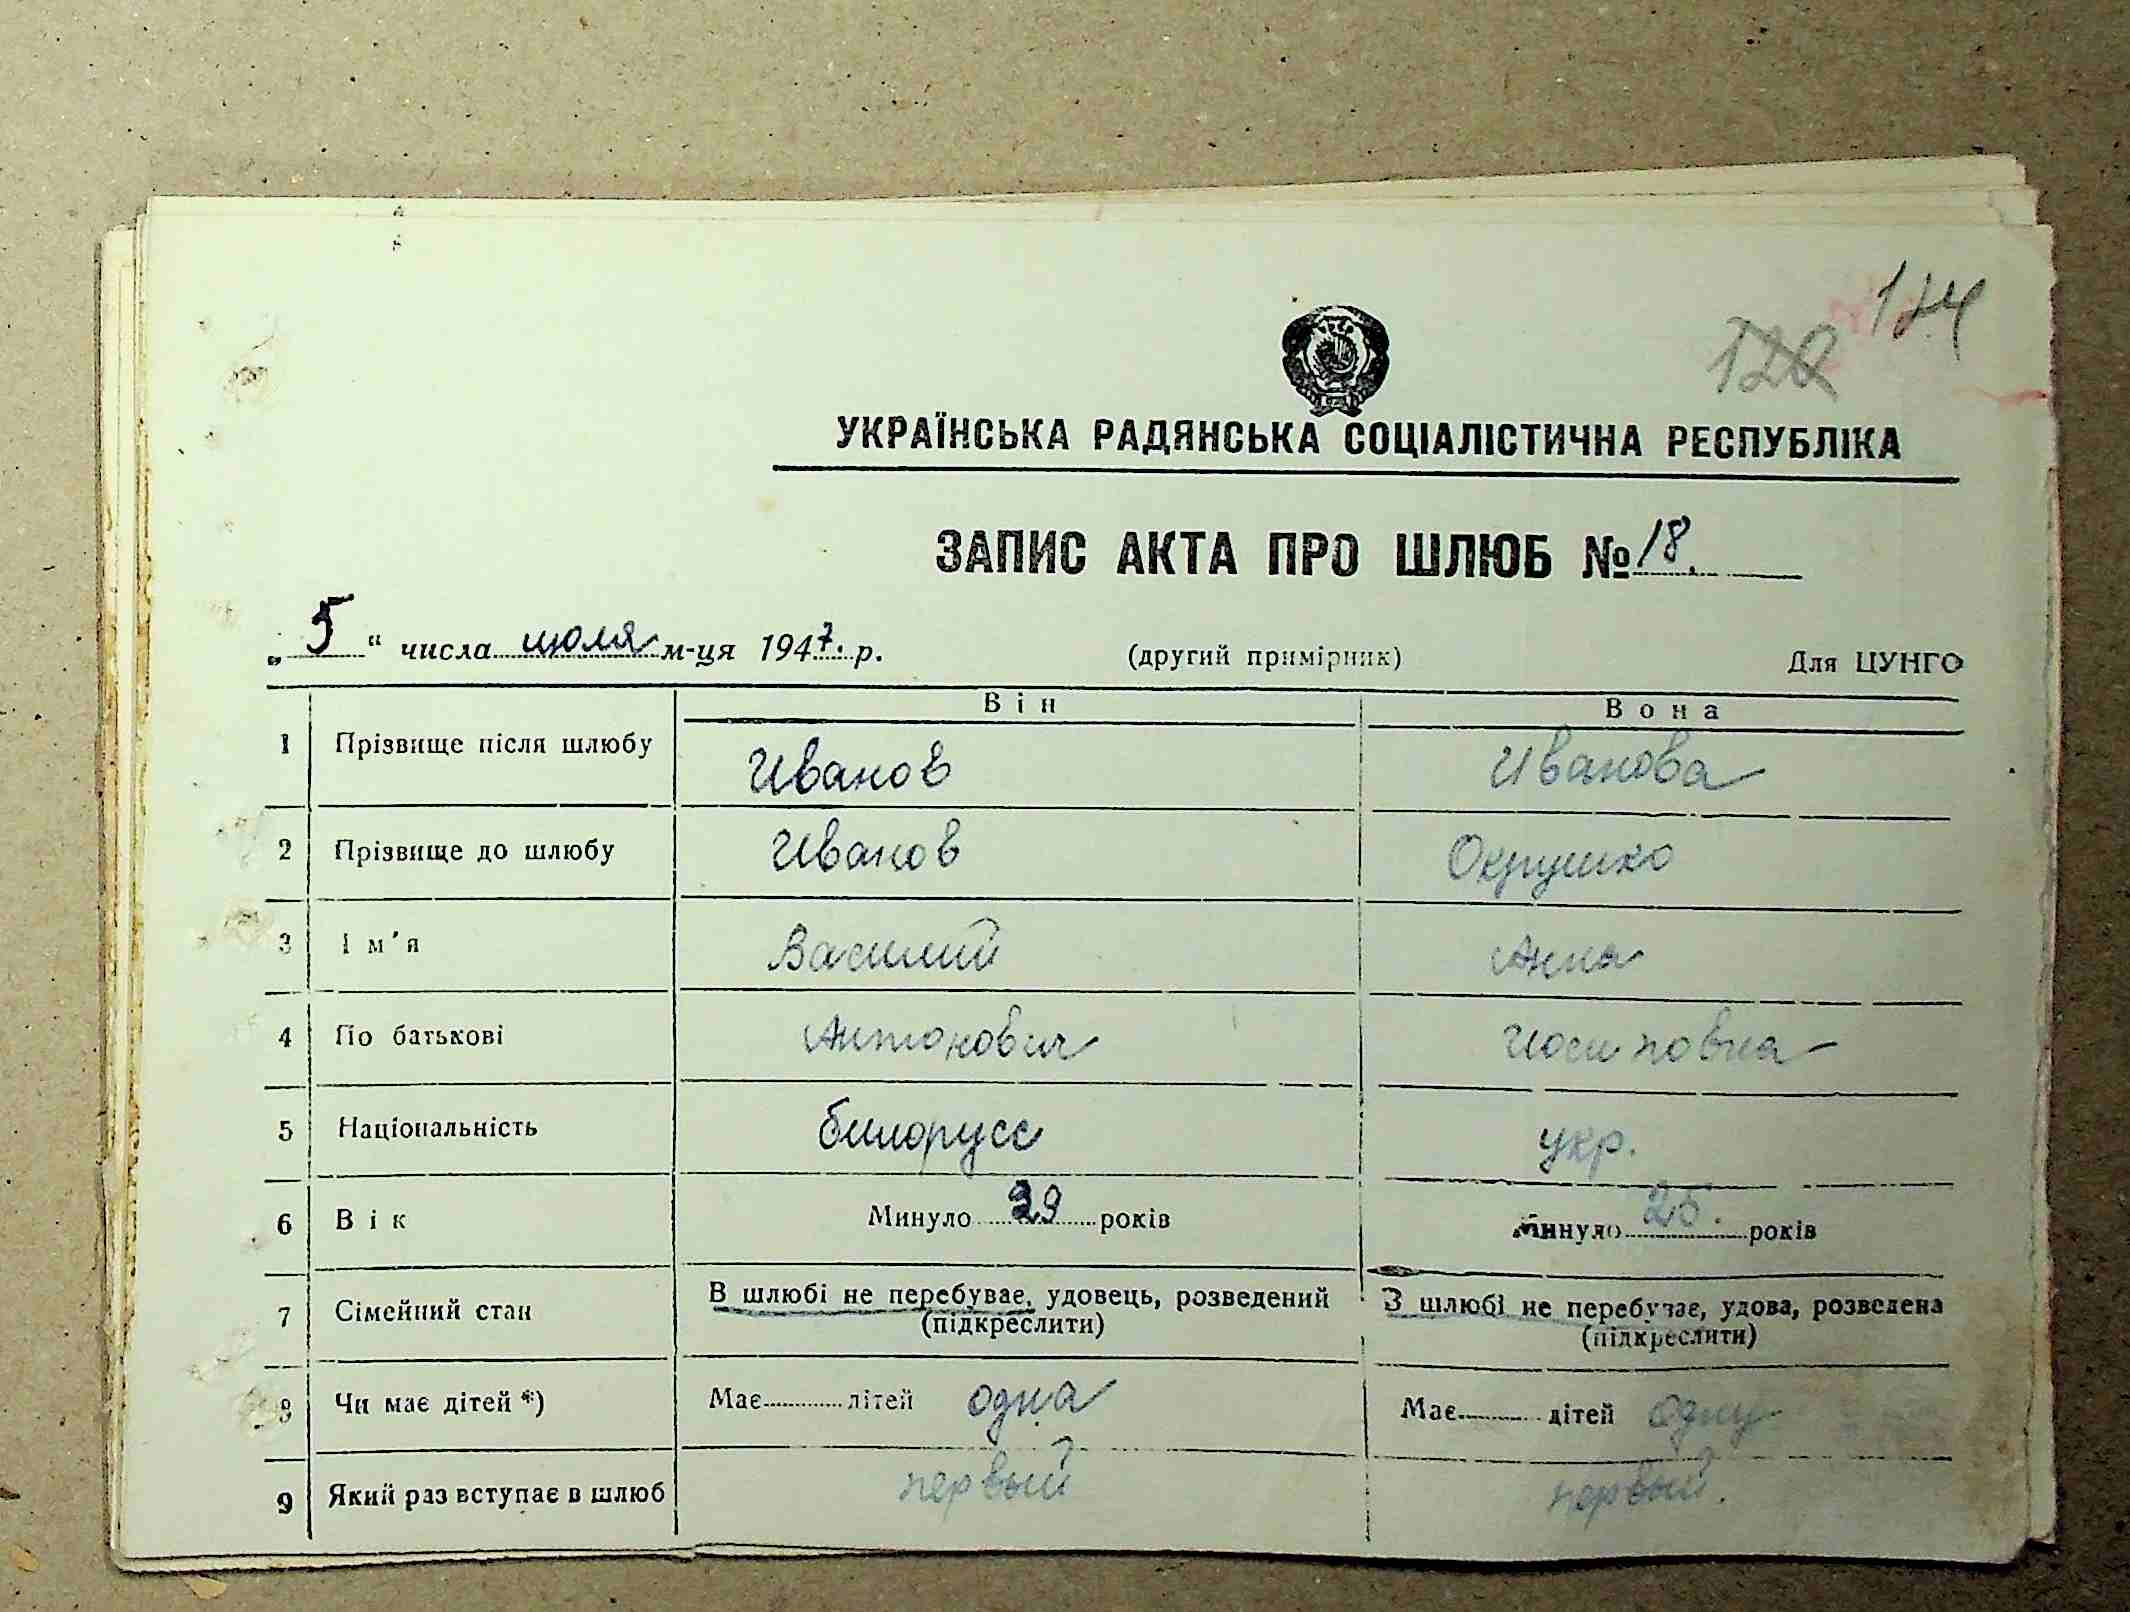 124
120
УКРАЇНСЬКА РАДЯНСЬКА СОЦІАЛІСТИЧНА РЕСПУБЛІКА
ЗАПИС АКТА ПРО ШЛЮБ № 18.
„5" числа июля м-ця 1947. р. (другий примірник) Для ЦУНГО
Він Вона
1 Прізвище після шлюбу Иванов Иванова
2 Прізвище до шлюбу Иванов Окрушко
3 Ім'я Василий Анна
4 По батькові Антонович Иосиповна
5 Національність билорусс укр.
6 Вік Минуло 39 років Минуло 25. років
7 Сімейний стан В шлюбі не перебуває, удовець, розведений З шлюбі не перебуває, удова, розведена
(підкреслити) (підкреслити)
8 Чи має дітей *) Має дітей одна Має дітей одну
9 Який раз вступає в шлюб первый первый.